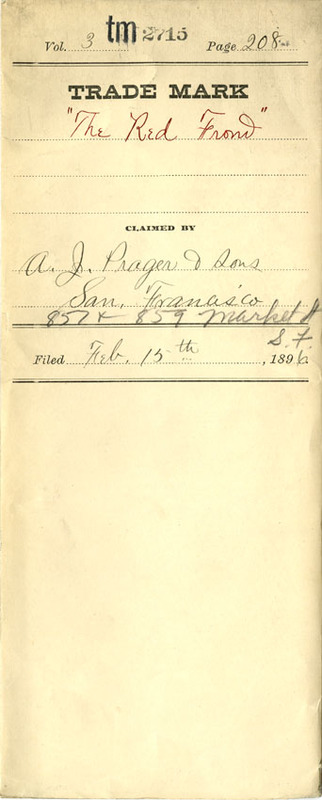 Vol. 3 tm 2715 Page 208
TRADE MARK
"The Red Front"
CLAIMED BY
A. J. Prager & Sons
San, Francisco
857 & 859 Market St
S. F.
Filed Feb. 15th, 1896.